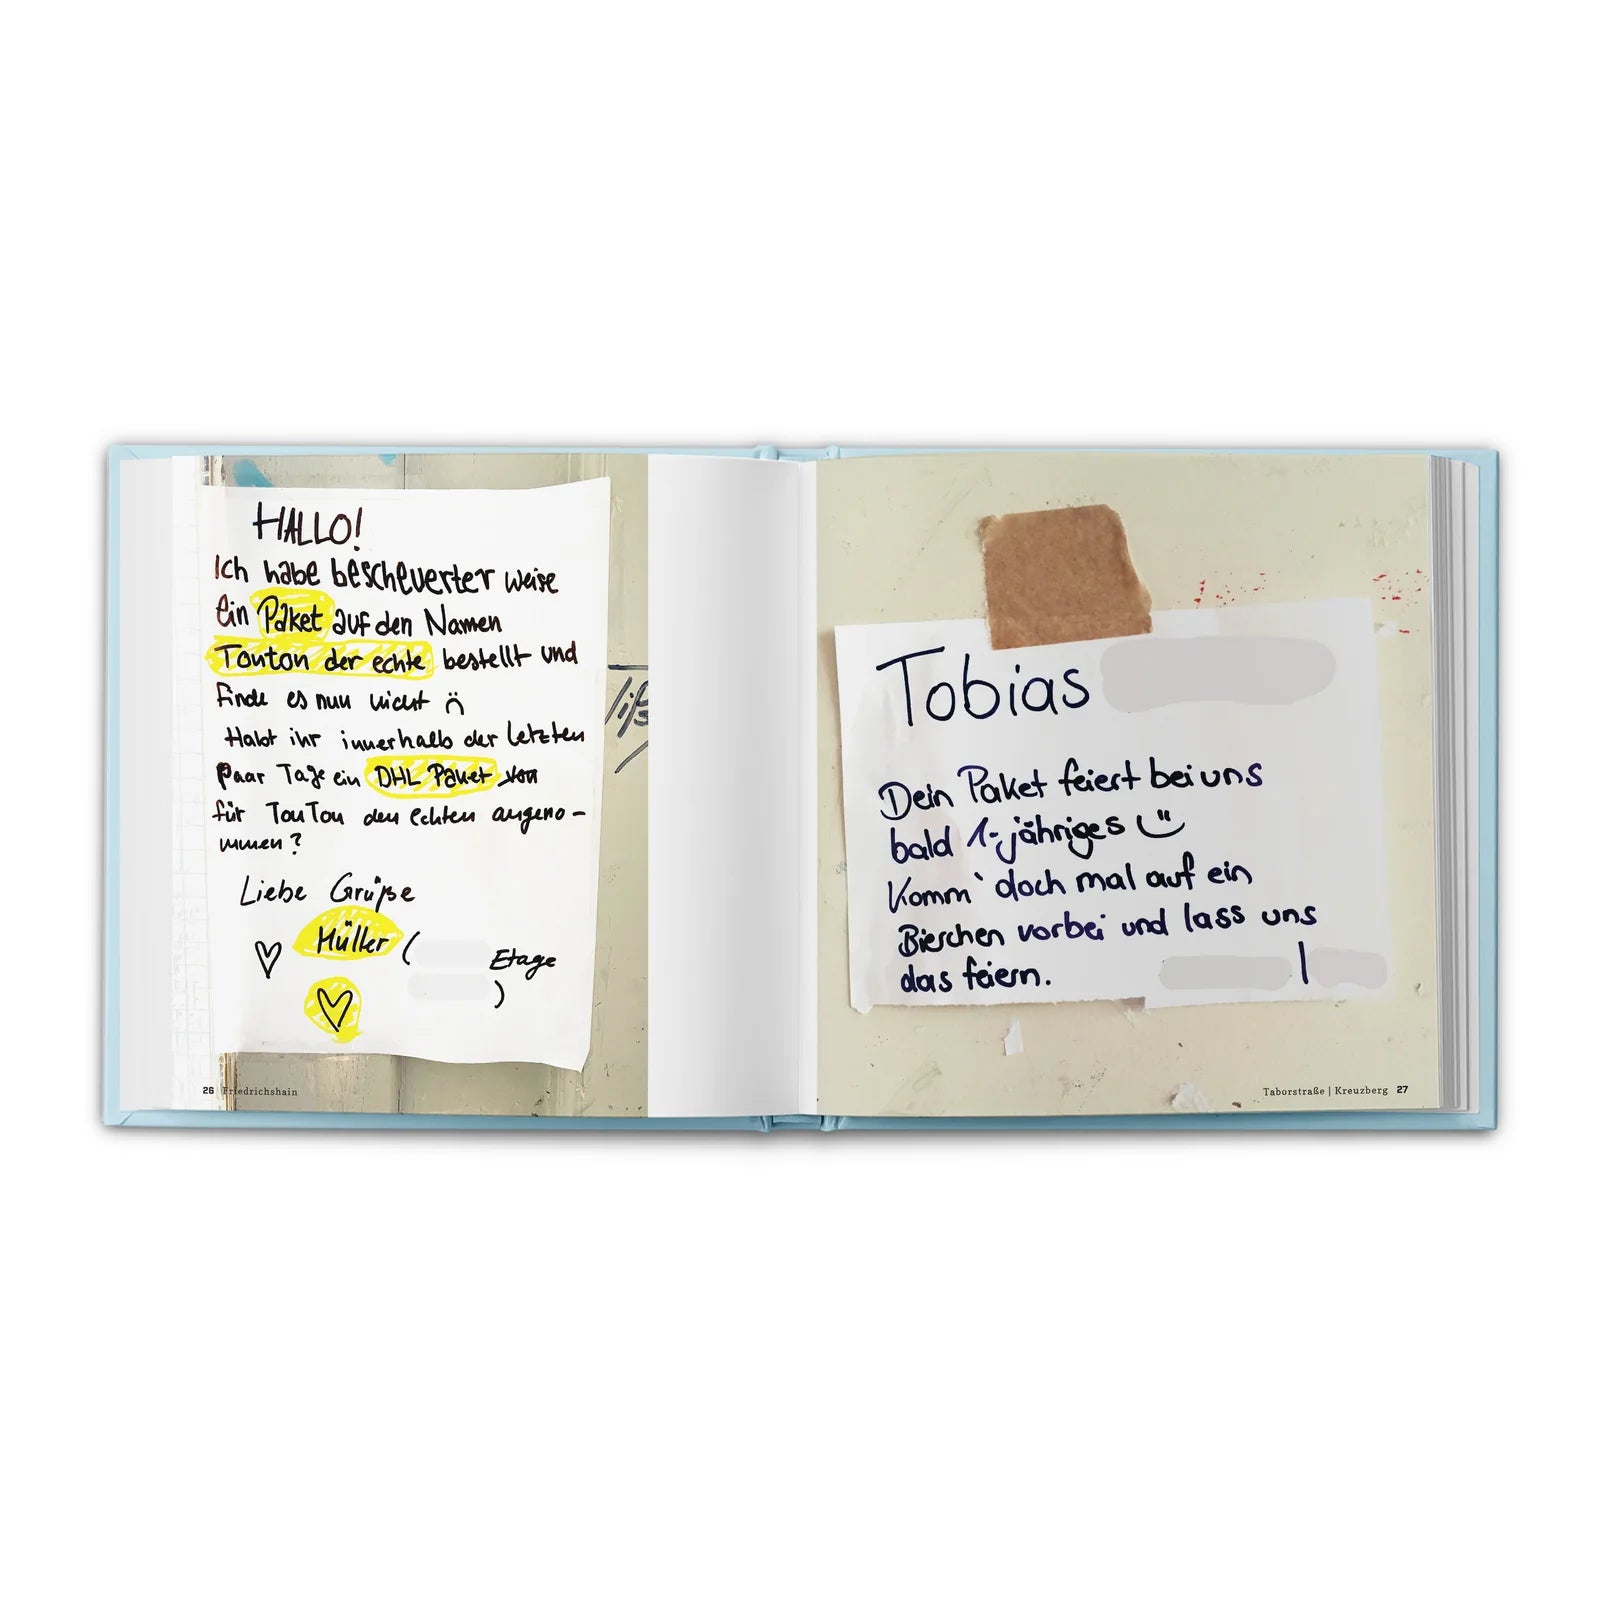 HALLO!
Ich habe bescheuerter weise
ein Paket auf den Namen
Touton der echte bestellt und
finde es nun nicht
Habt ihr innerhalb der letzten
paar Tage ein DHL Paket von
für TouTou den echten angeno-
mmen?
Liebe Grüße
Müller (
Etage
)
26 Friedrichshain
Tobias
Dein Paket feiert bei uns
bald 1-jähriges
Komm' doch mal auf ein
Bierchen vorbei und lass uns
das feiern.
Taborstraße | Kreuzberg 27